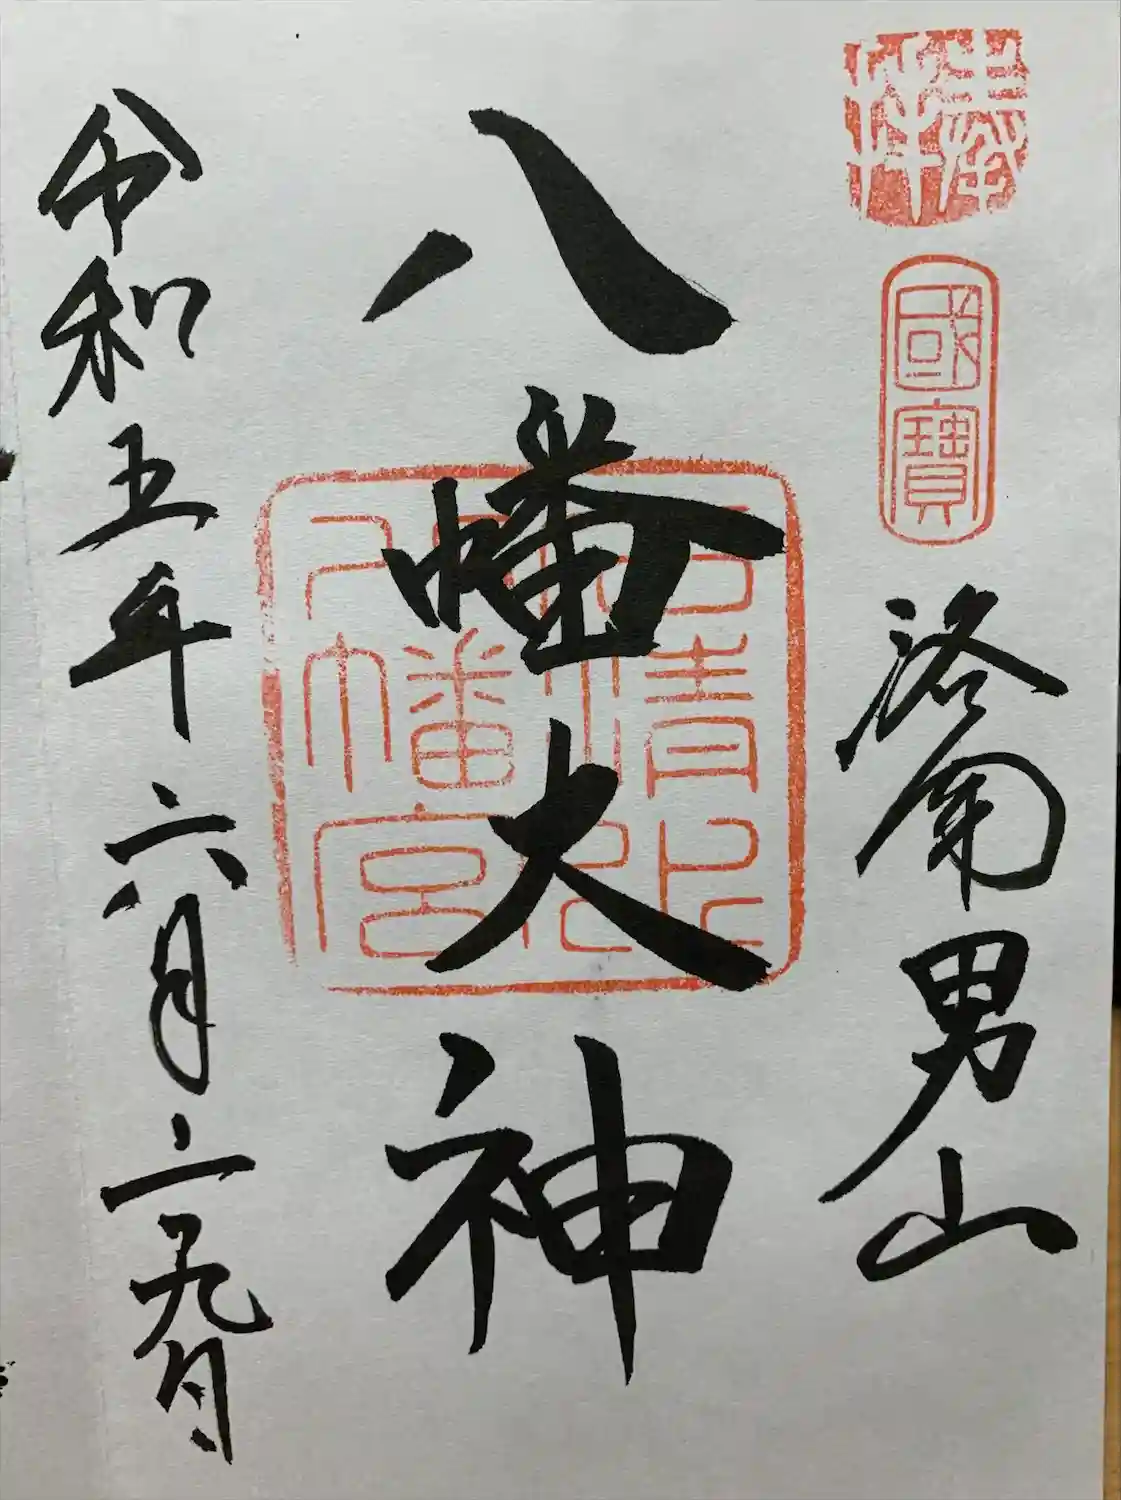 奉拝
國寶
洛南男山
八幡大神
石清水八幡宮
令和五年六月二十九日